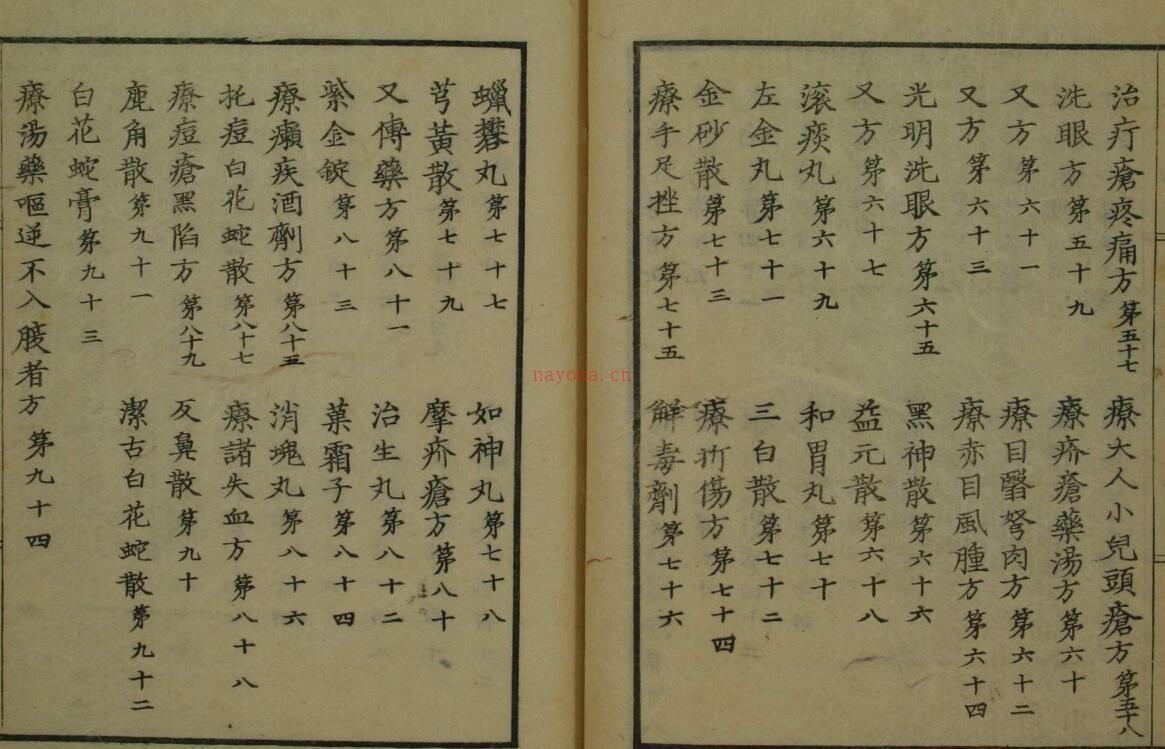 治疔瘡疼痛方第五十七 療大人小兒頭瘡方第五十八
洗眼方第五十九 療疥瘡藥湯方第六十
又方第六十一 療目翳努肉方第六十二
又方第六十三 療赤目風腫方第六十四
光明洗眼方第六十五 黑神散第六十六
又方第六十七 益元散第六十八
滚痰丸第六十九 和胃丸第七十
左金丸第七十一 三白散第七十二
金砂散第七十三 療折傷方第七十四
療手足挫方第七十五 解毒劑第七十六
蠟礬丸第七十七 如神丸第七十八
芎黃散第七十九 摩疥瘡方第八十
又傅藥方第八十一 治生丸第八十二
紫金錠第八十三 菓霜子第八十四
療癩疾酒劑方第八十五 消塊丸第八十六
托痘白花蛇散第八十七 療諸失血方第八十八
療痘瘡黑陷方第八十九 反鼻散第九十
鹿角散第九十一 潔古白花蛇散第九十二
白花蛇膏第九十三
療湯藥嘔逆不入腹者方第九十四
nayona.cn